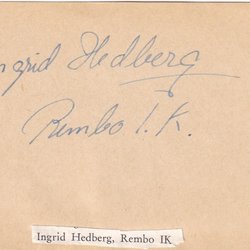 ngrid Hedberg
Rembo I.K.
Ingrid Hedberg, Rembo IK